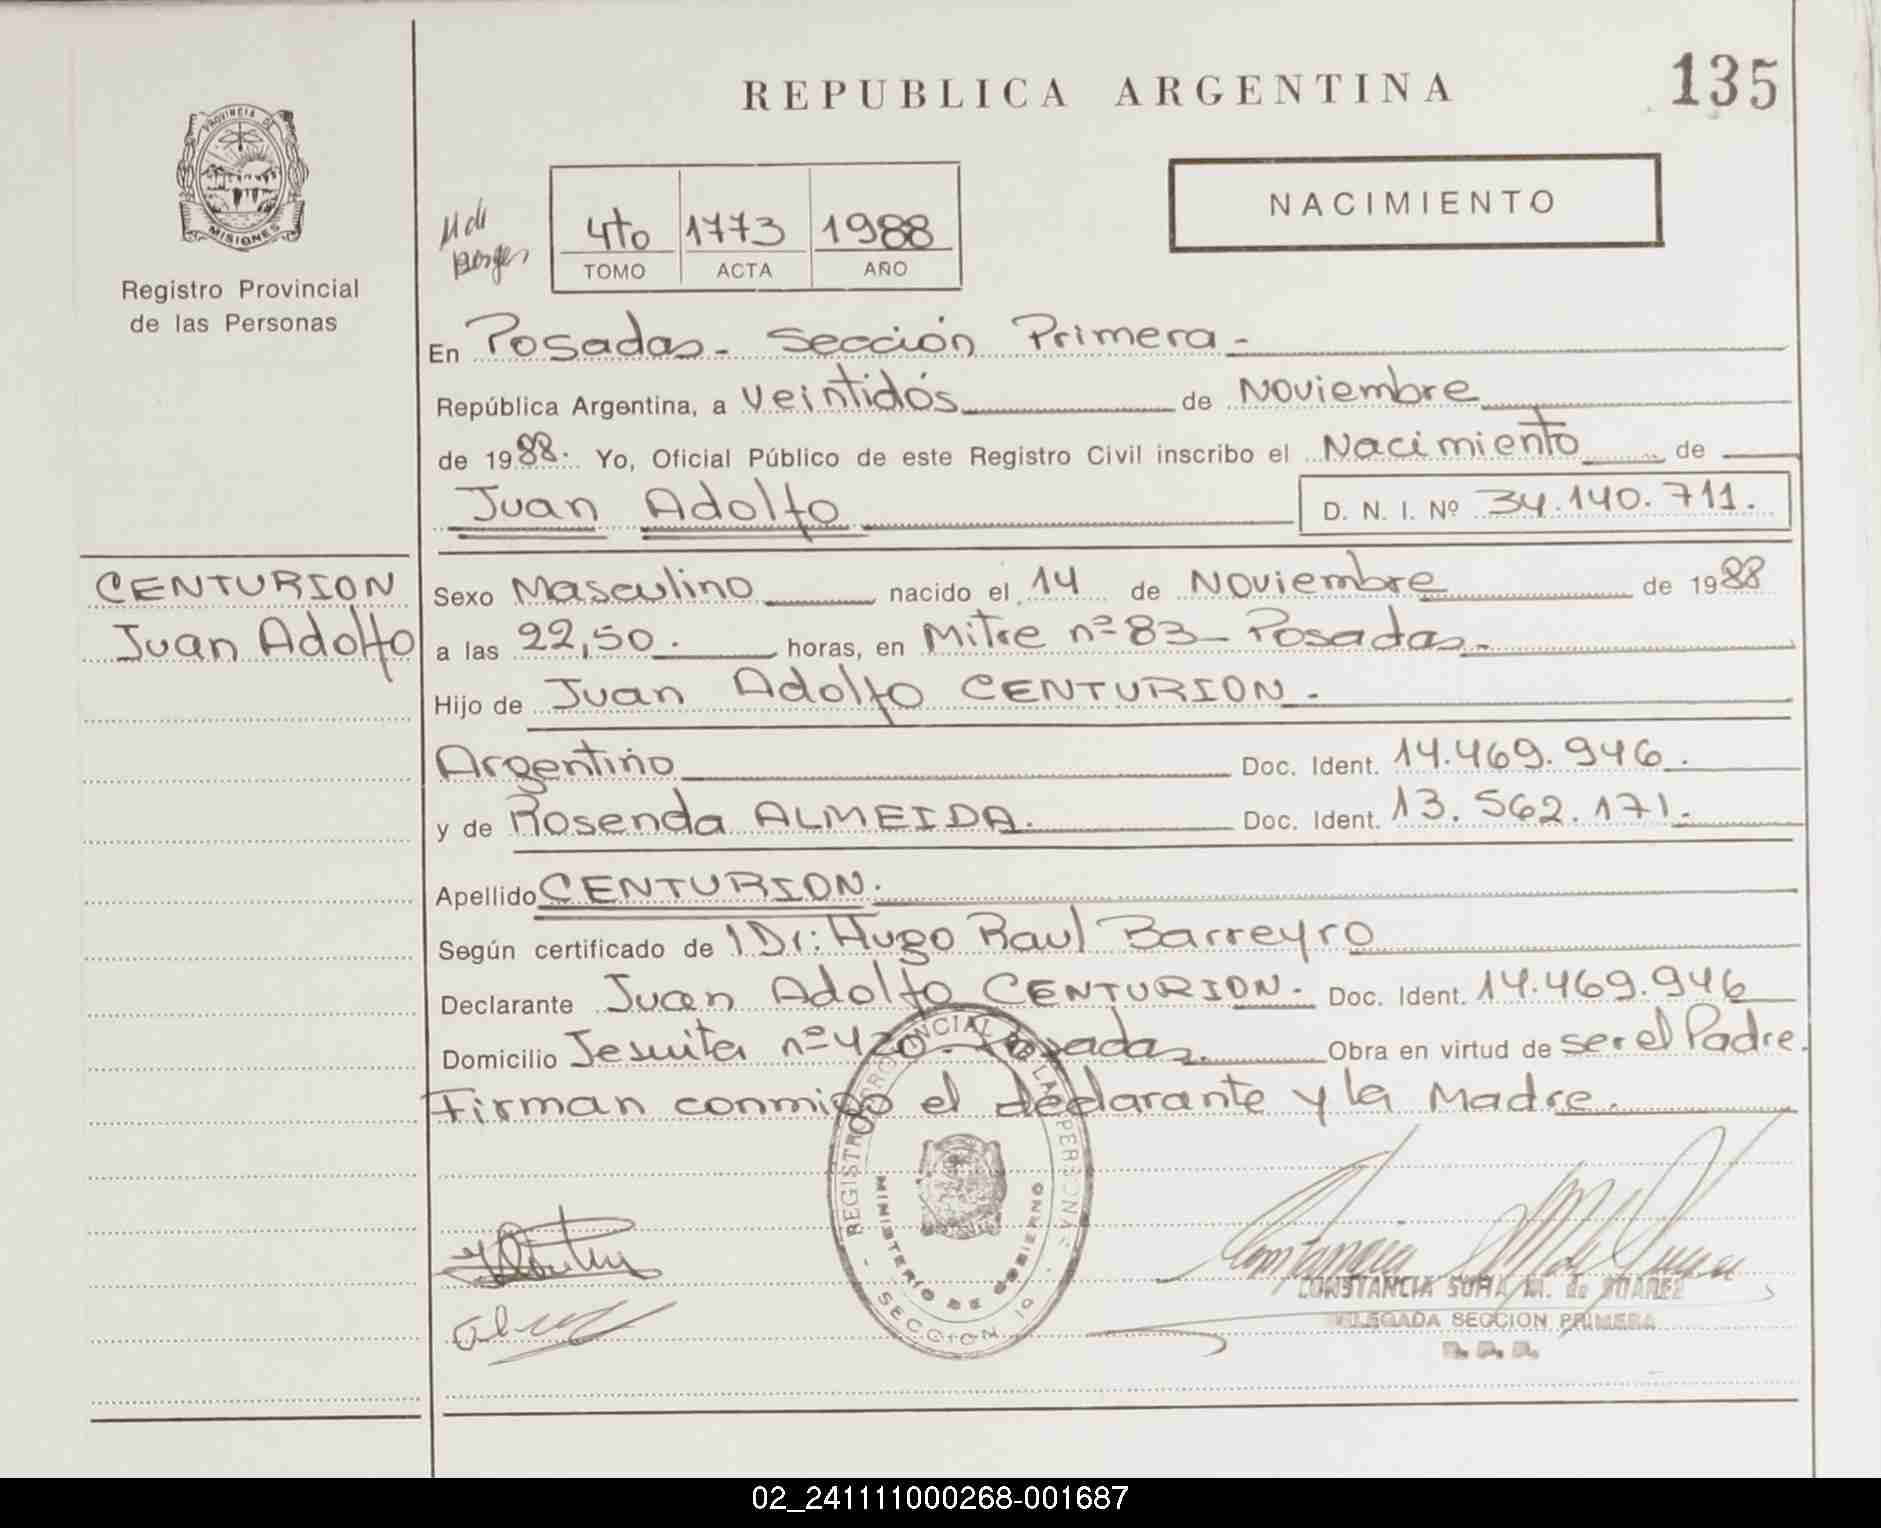 REPUBLICA ARGENTINA
135
PROVINCIA DE
MISIONES
Registro Provincial
de las Personas
NACIMIENTO
4to 1773 1988
TOMO ACTA AÑO
En Posadas - Sección Primera -
República Argentina, a Veintidós de Noviembre
de 1988. Yo, Oficial Público de este Registro Civil inscribo el Nacimiento de
Juan Adolfo D. N. I. Nº 34.140.711.
CENTURION
Juan Adolfo
Sexo Masculino nacido el 14 de Noviembre de 1988
a las 22,50. horas, en Mitre nº 83 - Posadas -
Hijo de Juan Adolfo CENTURION.
Argentino Doc. Ident. 14.469.946.
y de Rosenda ALMEIDA. Doc. Ident. 13.562.171.
Apellido CENTURION.
Según certificado de Dr: Hugo Raul Barreyro
Declarante Juan Adolfo CENTURION. Doc. Ident. 14.469.946
Domicilio Jesuita nº 420 - Posadas. Obra en virtud de ser el Padre.
Firman conmigo el declarante y la Madre.
REGISTRO PROVINCIAL DE LAS PERSONAS
MINISTERIO DE GOBIERNO
SECCION 1a
CONSTANCIA SUHA M. de SUAREZ
DELEGADA SECCION PRIMERA
R. P. P.
02_241111000268-001687